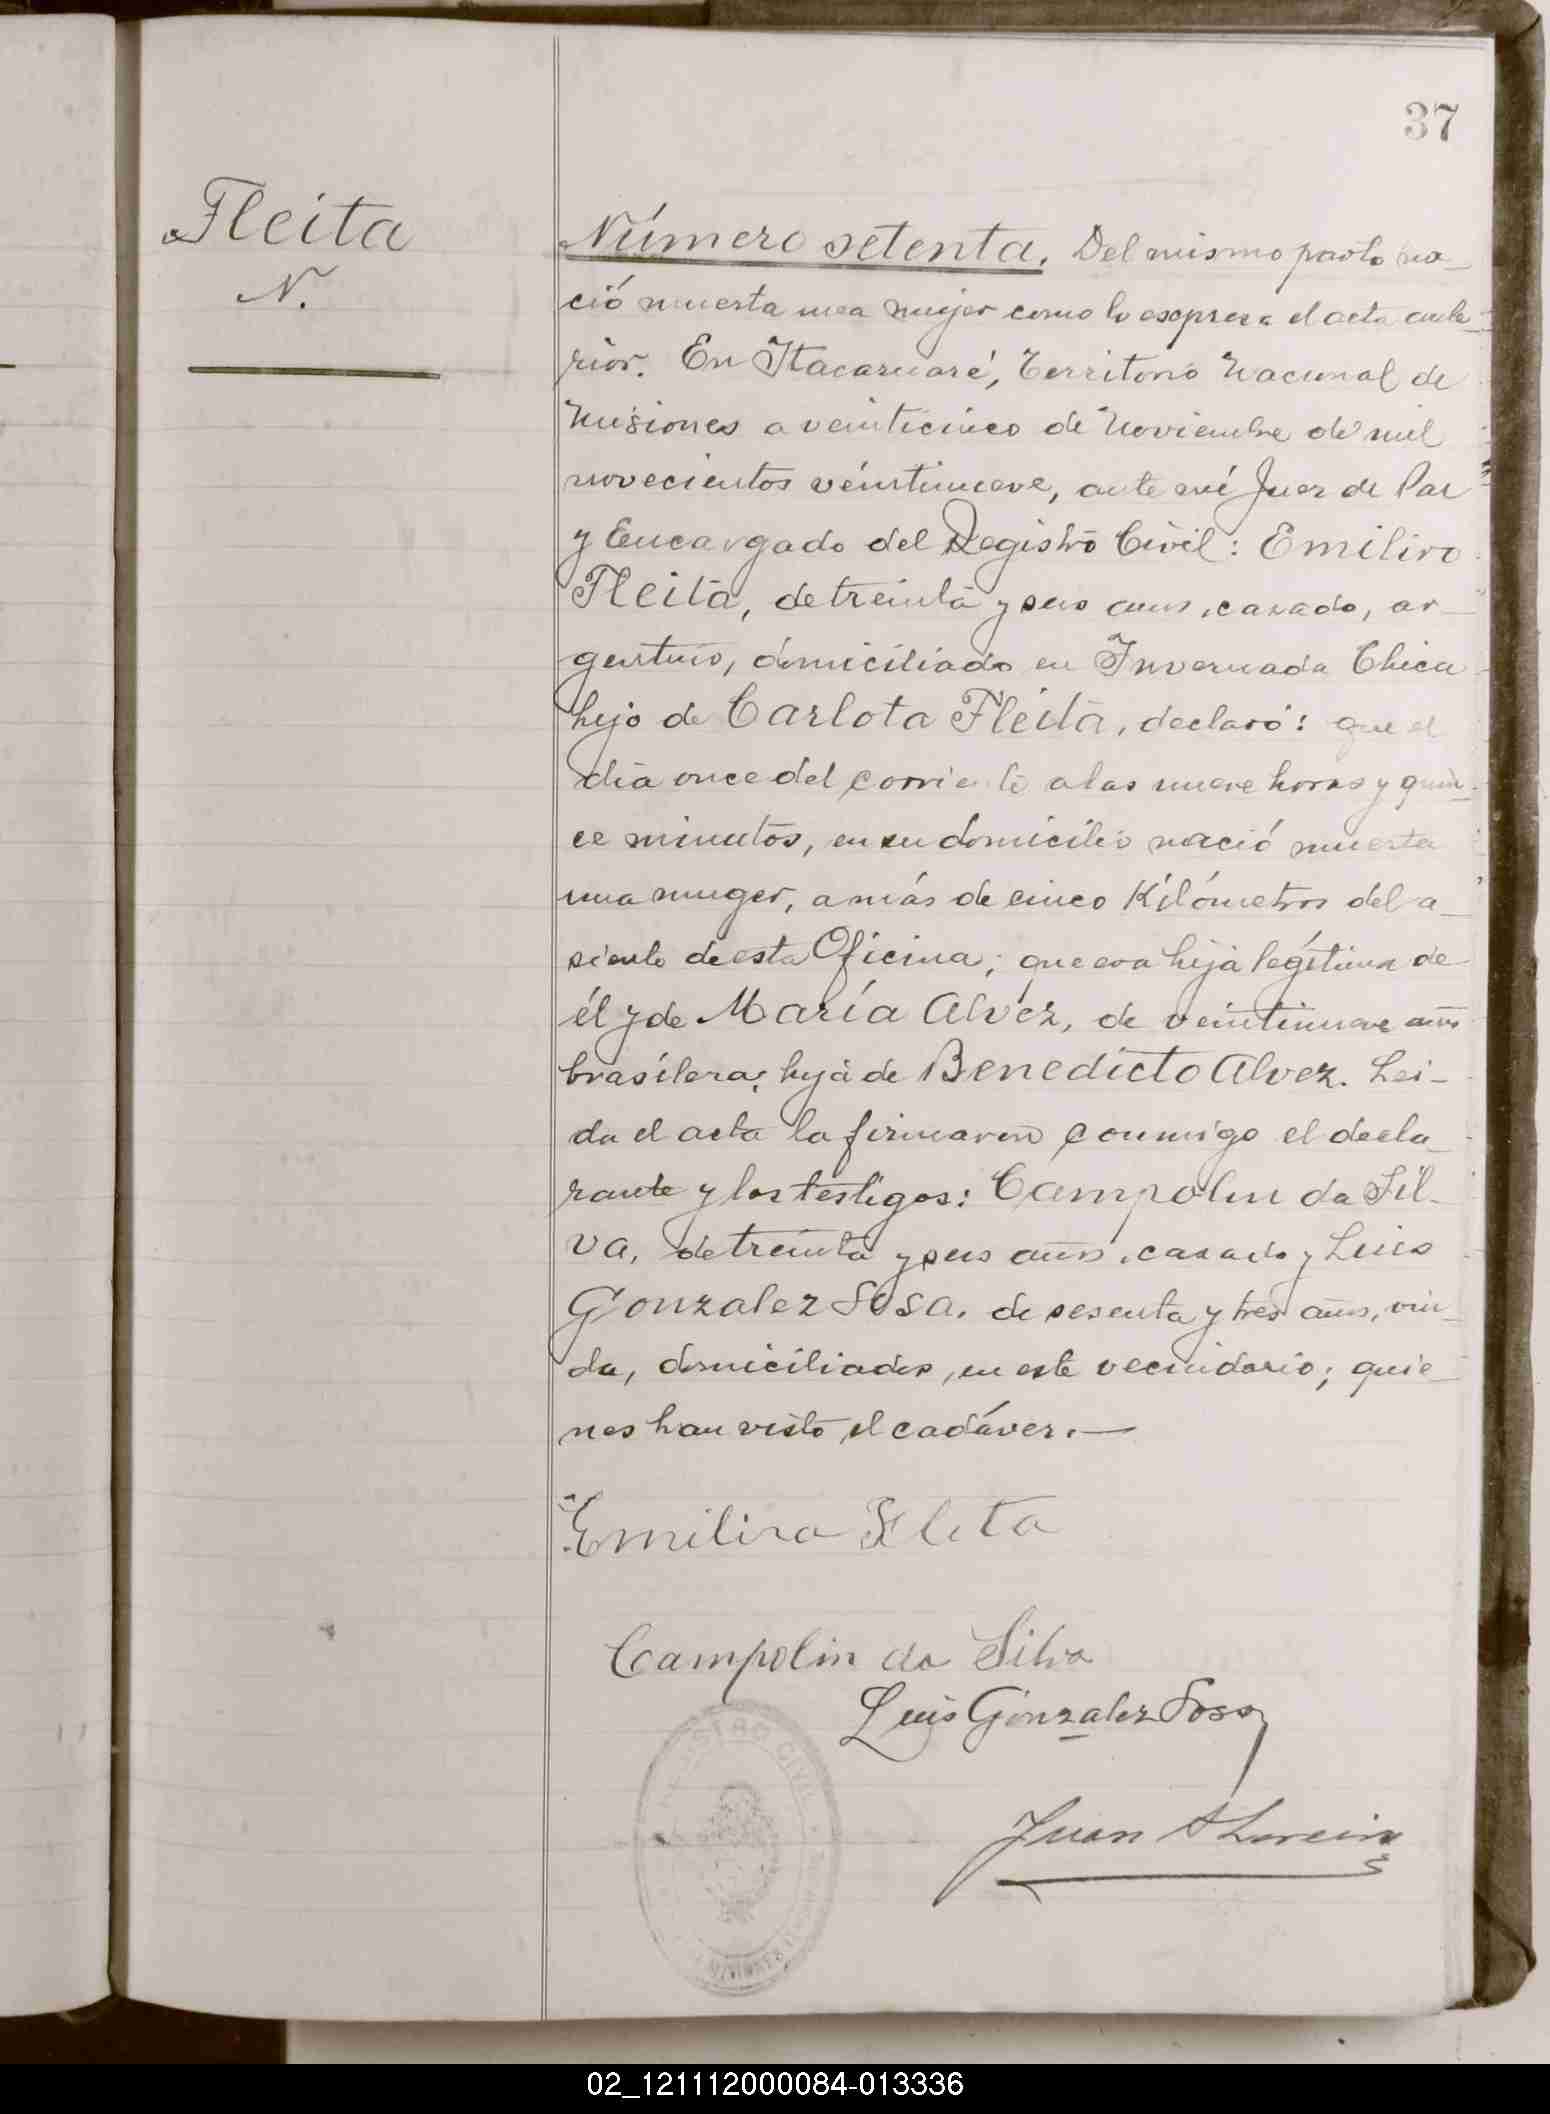 37
Fleita
N.
Número setenta. Del mismo parto na-
ció muerta una mujer como lo expresa el acta ante-
rior. En Itacaruaré, Territorio Nacional de
Misiones a veinticinco de Noviembre de mil
novecientos veintinueve, ante mí Juez de Paz
y Encargado del Registro Civil: Emilino
Fleita, de treinta y seis años, casado, ar-
gentino, domiciliado en Invernada Chica
hijo de Carlota Fleita, declaró: que el
día once del corriente a las nueve horas y quin-
ce minutos, en su domicilio nació muerta
una muger, a más de cinco Kilómetros del a-
siento de esta Oficina; que era hija legítima de
él y de María Alvez, de veintinueve años
brasilera, hija de Benedicto Alvez. Lei-
da el acta la firmaron conmigo el decla-
rante y los testigos: Campolin da Sil-
va, de treinta y seis años, casado y Luis
Gonzalez Sosa, de sesenta y tres años, viu-
do, domiciliados, en este vecindario; quie-
nes han visto el cadáver.—
Emilino Fleta
Campolin da Silva
Luis Gonzalez Sosa
REGISTRO CIVIL
Juan
02_121112000084-013336